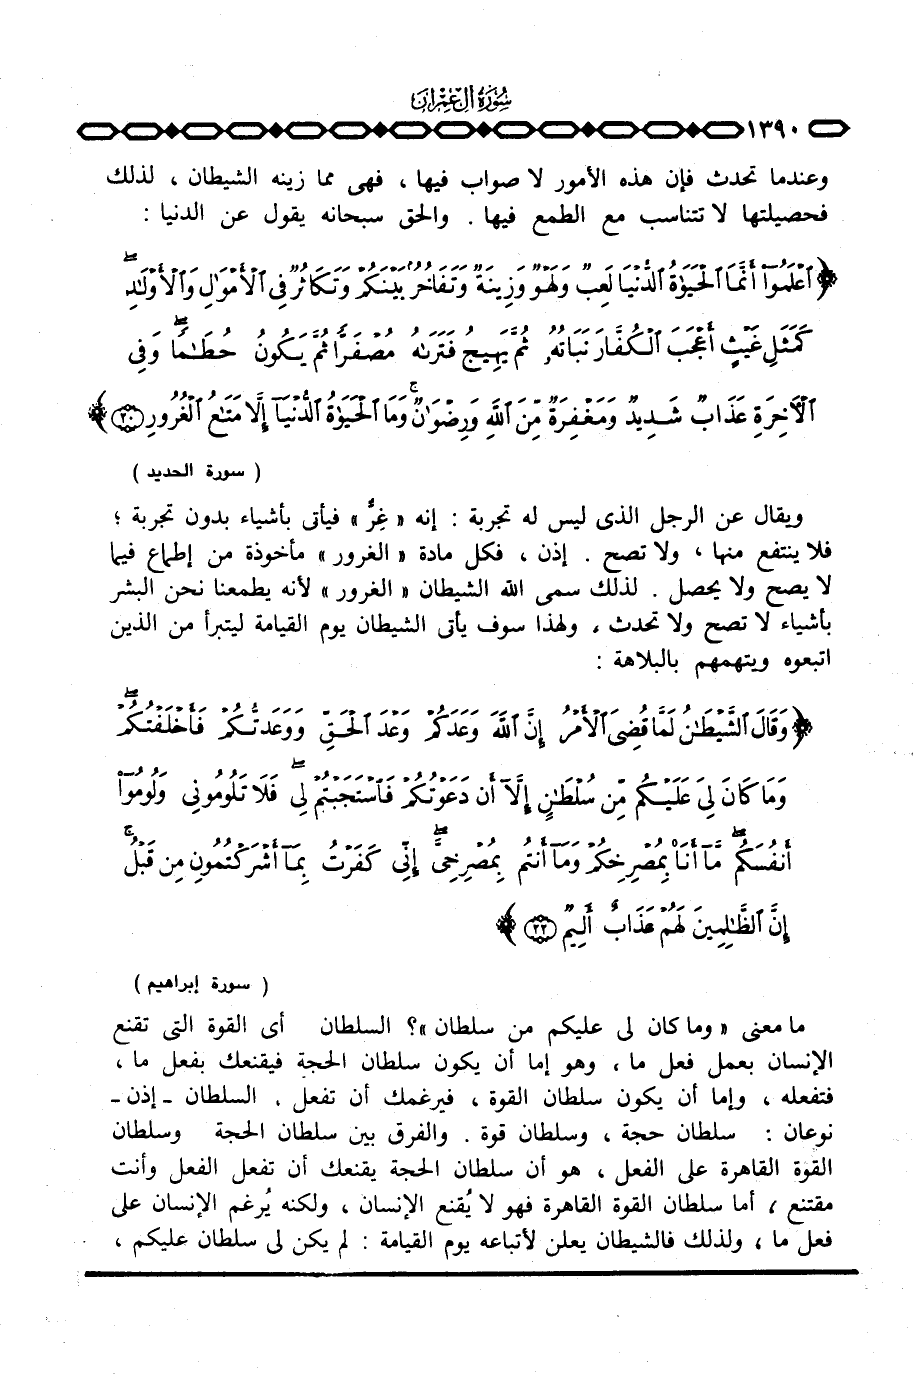 سورة آل عمران
١٣٩٠
وعندما تحدث فإن هذه الأمور لا صواب فيها ، فهى مما زينه الشيطان ، لذلك
فحصيلتها لا تتناسب مع الطمع فيها . والحق سبحانه يقول عن الدنيا :
﴿ ٱعْلَمُوٓا۟ أَنَّمَا ٱلْحَيَوٰةُ ٱلدُّنْيَا لَعِبٌ وَلَهْوٌ وَزِينَةٌ وَتَفَاخُرٌۢ بَيْنَكُمْ وَتَكَاثُرٌ فِى ٱلْأَمْوَٰلِ وَٱلْأَوْلَٰدِ ۖ
كَمَثَلِ غَيْثٍ أَعْجَبَ ٱلْكُفَّارَ نَبَاتُهُۥ ثُمَّ يَهِيجُ فَتَرَىٰهُ مُصْفَرًّا ثُمَّ يَكُونُ حُطَٰمًا ۖ وَفِى
ٱلْـَٔاخِرَةِ عَذَابٌ شَدِيدٌ وَمَغْفِرَةٌ مِّنَ ٱللَّهِ وَرِضْوَٰنٌ ۚ وَمَا ٱلْحَيَوٰةُ ٱلدُّنْيَآ إِلَّا مَتَٰعُ ٱلْغُرُورِ ٢٠ ﴾
( سورة الحديد )
ويقال عن الرجل الذى ليس له تجربة : إنه « غِرُّ » فيأتى بأشياء بدون تجربة ؛
فلا ينتفع منها ، ولا تصح . إذن ، فكل مادة « الغرور » مأخوذة من إطماع فيما
لا يصح ولا يحصل . لذلك سمى الله الشيطان « الغرور » لأنه يطمعنا نحن البشر
بأشياء لا تصح ولا تحدث ، ولهذا سوف يأتى الشيطان يوم القيامة ليتبرأ من الذين
اتبعوه ويتهمهم بالبلاهة :
﴿ وَقَالَ ٱلشَّيْطَٰنُ لَمَّا قُضِىَ ٱلْأَمْرُ إِنَّ ٱللَّهَ وَعَدَكُمْ وَعْدَ ٱلْحَقِّ وَوَعَدتُّكُمْ فَأَخْلَفْتُكُمْ ۖ
وَمَا كَانَ لِىَ عَلَيْكُم مِّن سُلْطَٰنٍ إِلَّآ أَن دَعَوْتُكُمْ فَٱسْتَجَبْتُمْ لِى ۖ فَلَا تَلُومُونِى وَلُومُوٓا۟
أَنفُسَكُم ۖ مَّآ أَنَا۠ بِمُصْرِخِكُمْ وَمَآ أَنتُم بِمُصْرِخِىَّ ۖ إِنِّى كَفَرْتُ بِمَآ أَشْرَكْتُمُونِ مِن قَبْلُ ۗ
إِنَّ ٱلظَّٰلِمِينَ لَهُمْ عَذَابٌ أَلِيمٌ ٢٢ ﴾
( سورة إبراهيم )
ما معنى « وما كان لى عليكم من سلطان »؟ السلطان أى القوة التى تقنع
الإنسان بعمل فعل ما ، وهو إما أن يكون سلطان الحجة فيقنعك بفعل ما ،
فتفعله ، وإما أن يكون سلطان القوة ، فيرغمك أن تفعل . السلطان ـ إذن ـ
نوعان : سلطان حجة ، وسلطان قوة . والفرق بين سلطان الحجة وسلطان
القوة القاهرة على الفعل ، هو أن سلطان الحجة يقنعك أن تفعل الفعل وأنت
مقتنع ، أما سلطان القوة القاهرة فهو لا يُقنع الإنسان ، ولكنه يُرغم الإنسان على
فعل ما ، ولذلك فالشيطان يعلن لأتباعه يوم القيامة : لم يكن لى سلطان عليكم ،